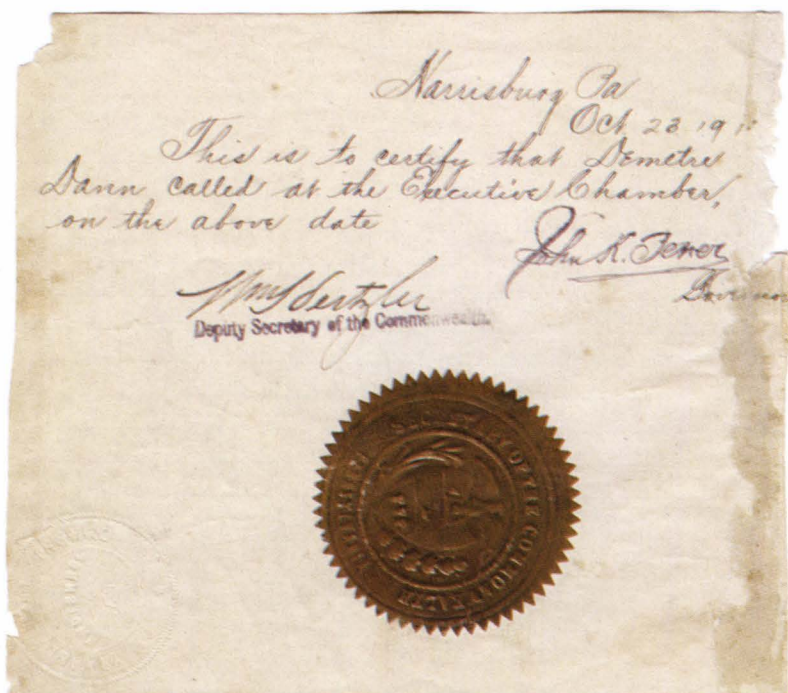 Harrisburg Pa
Oct 23 191
This is to certify that Demetre
Dann called at the Executive Chamber,
on the above date
John K. Tener
Governor
Wm Hertzler
Deputy Secretary of the Commonwealth.